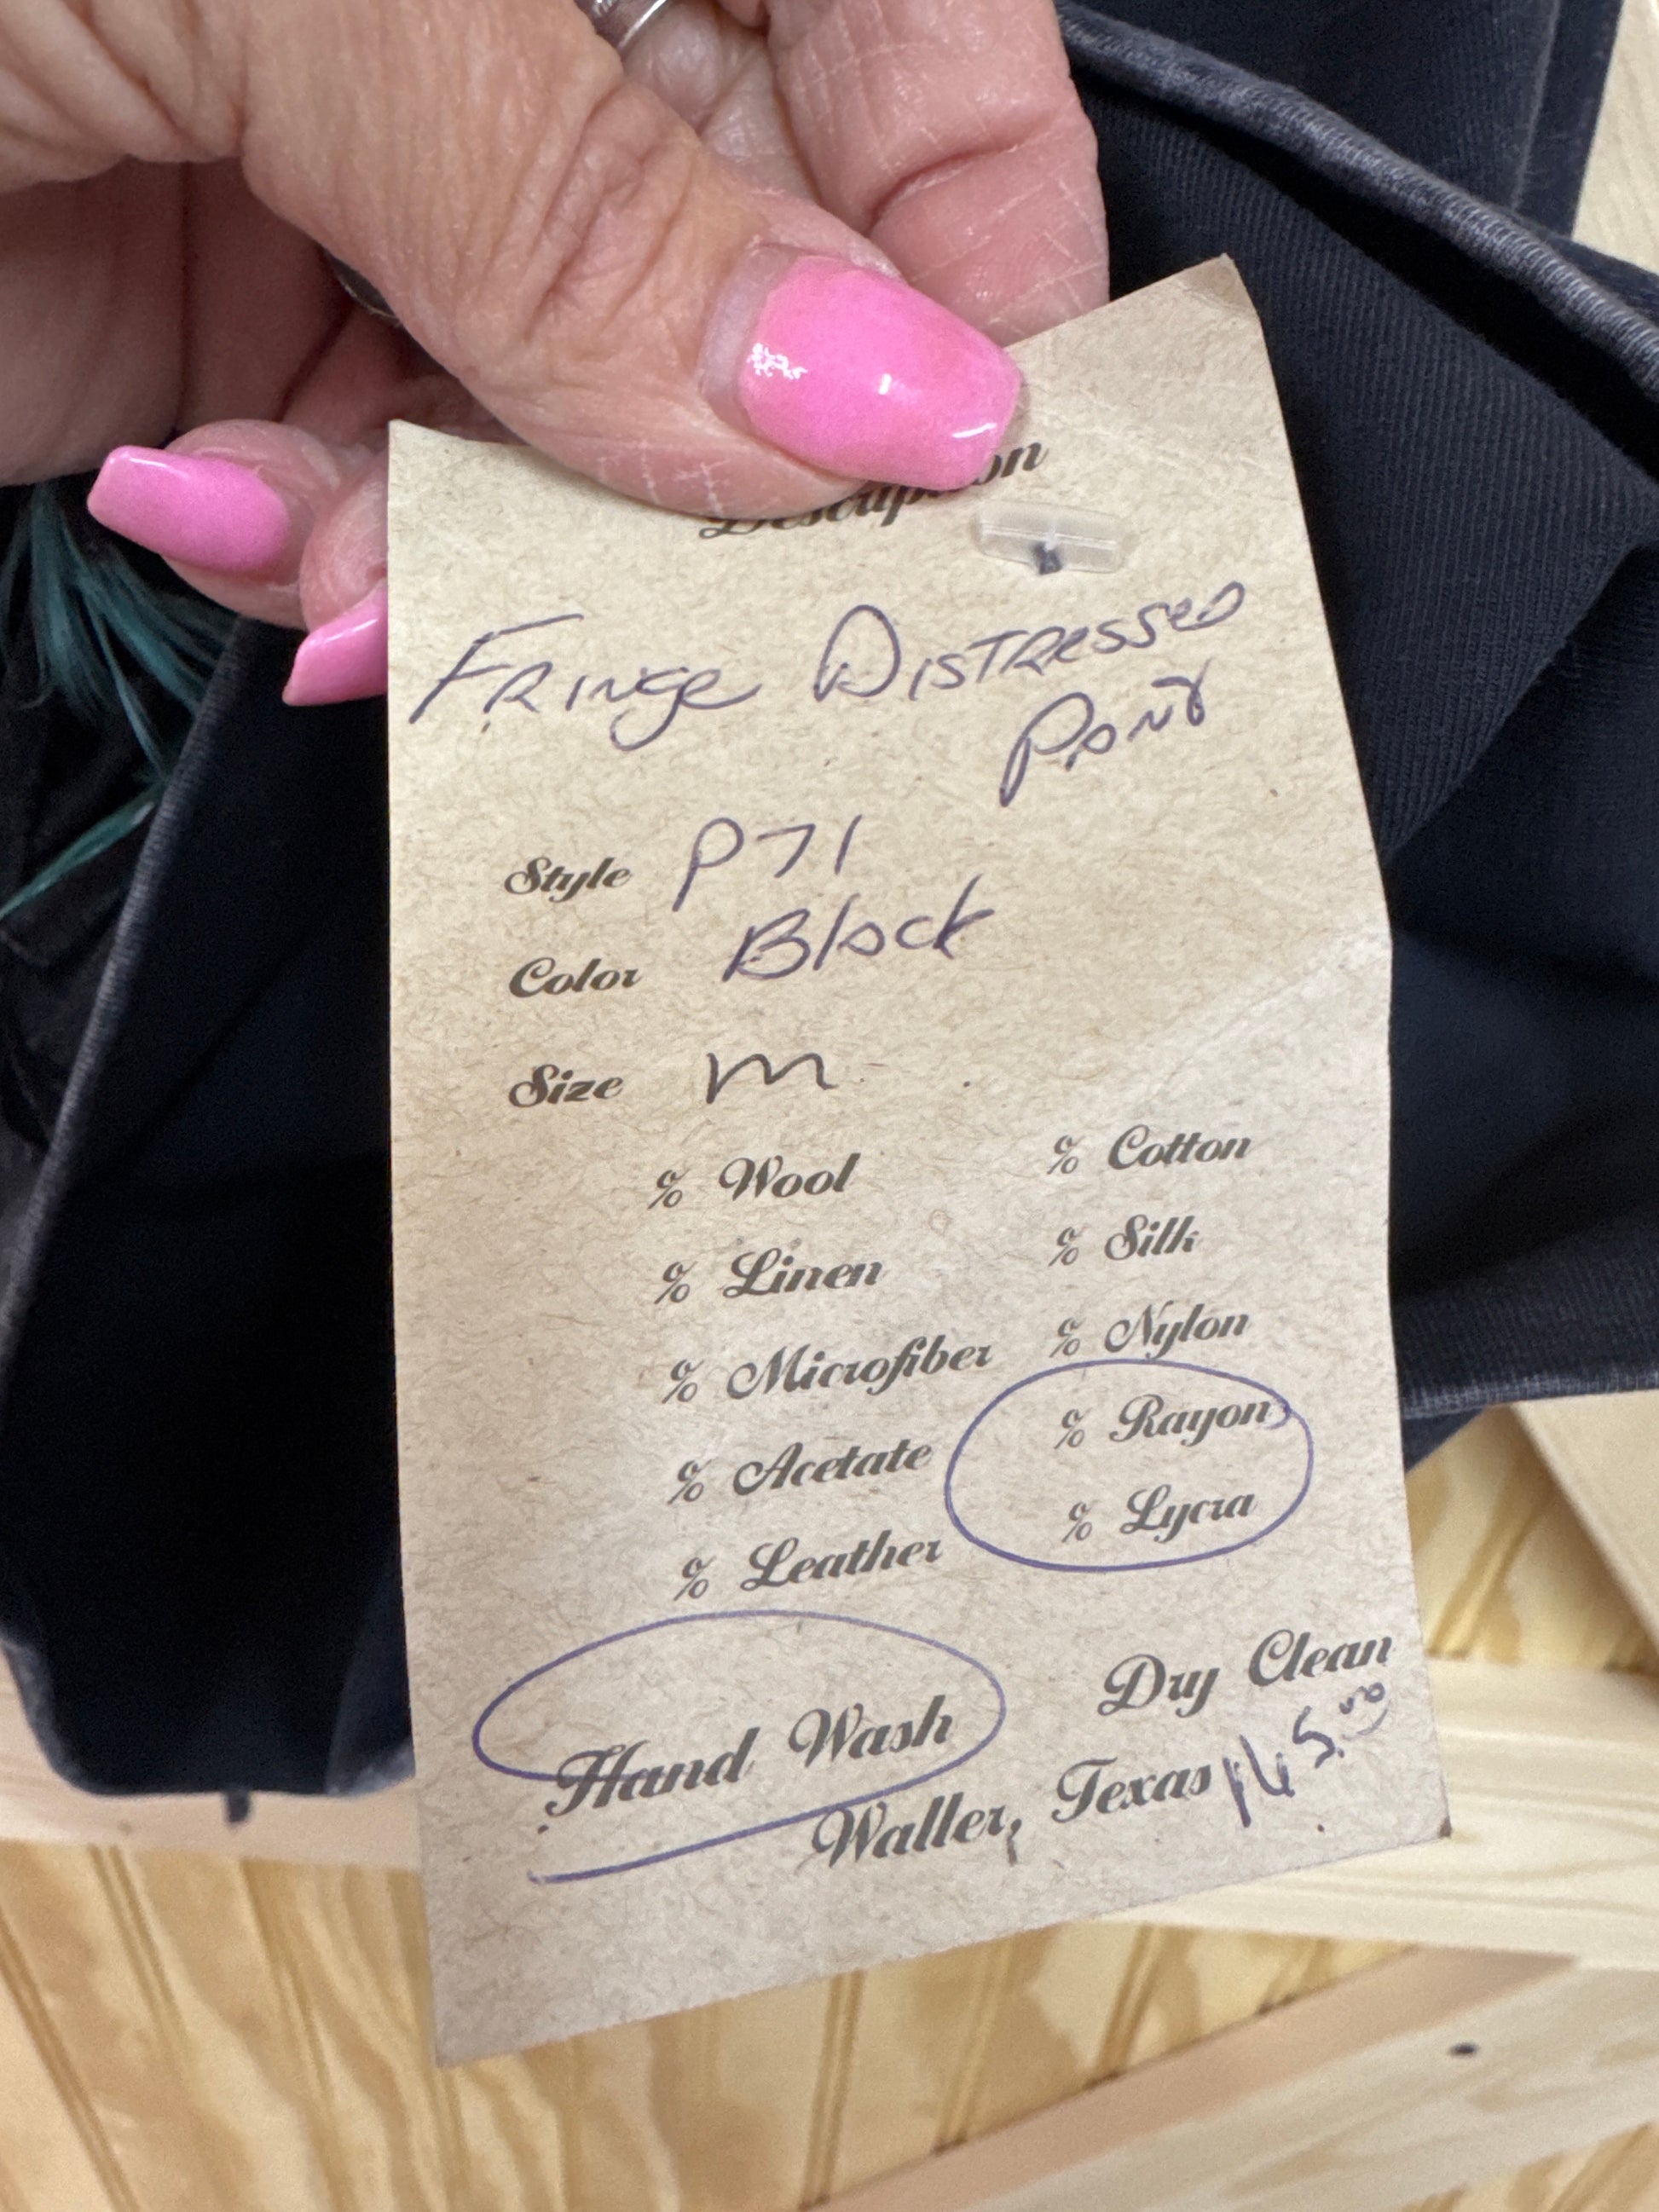 Description
Fringe Distressed
Pant
Style P71
Color Black
Size m
% Wool % Cotton
% Linen % Silk
% Microfiber % Nylon
% Acetate % Rayon
% Leather % Lycra
Hand Wash Dry Clean
Waller, Texas 165.00